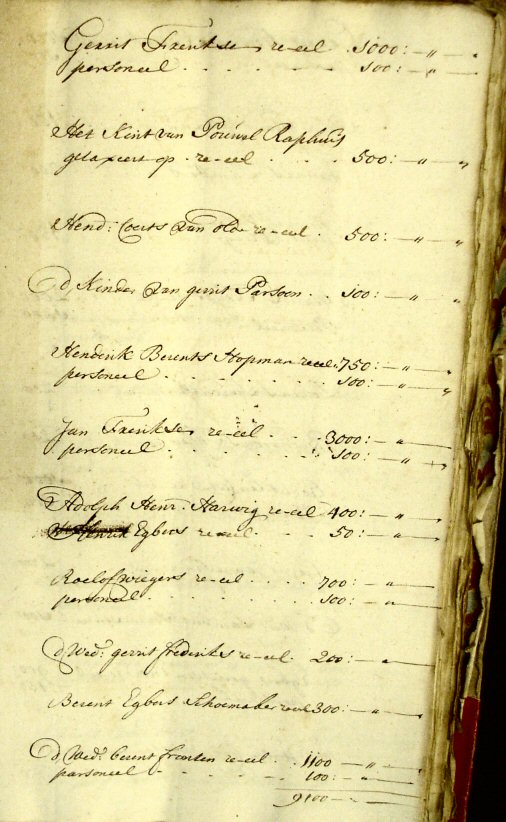 Gerrit Frerikse re-eel . 1000: - " -
personeel . . . . . . 100: - " -
Het Kint van Pouwel Raphuis
getaxeert op . re-eel . . . . 500: - " - "
Hend: Coerts van Olde re-eel . 500: - " - "
D Kinder van gerrit Parsoen . . 100: - " - "
Henderik Berents Hopman re-eel . 750: - " -
personeel . . . . . . . 100: - " - "
Jan Frerikse re-eel . . . 3000: - " -
personeel . . . . . . 100: - " -
Adolph Henr: Harwig re-eel 400: - " -
Egbers re-eel . . . 50: - " -
Roelof wiegers re-eel . . . . 700: - " -
personeel . . . . . . . 100: - " -
D Wed: gerrit frederiks re-eel . 200: - " -
Berent Egbers Schoemaker re-eel 300: - " -
D Wed: berent re-eel . . 1100 - " -
parsoneel . . . . . . 100: - " -
9100 - - -